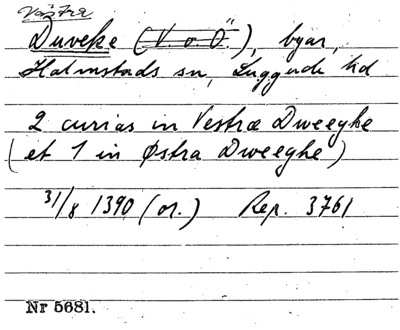 Västra
Duveke (V. o. Ö.), byar,
Halmstads sn, Luggude hd
2 curias in Vestræ Dweeghe
(et 1 in Østra Dweeghe)
31/8 1390 (or.) Rep. 3761
Nr 5681.